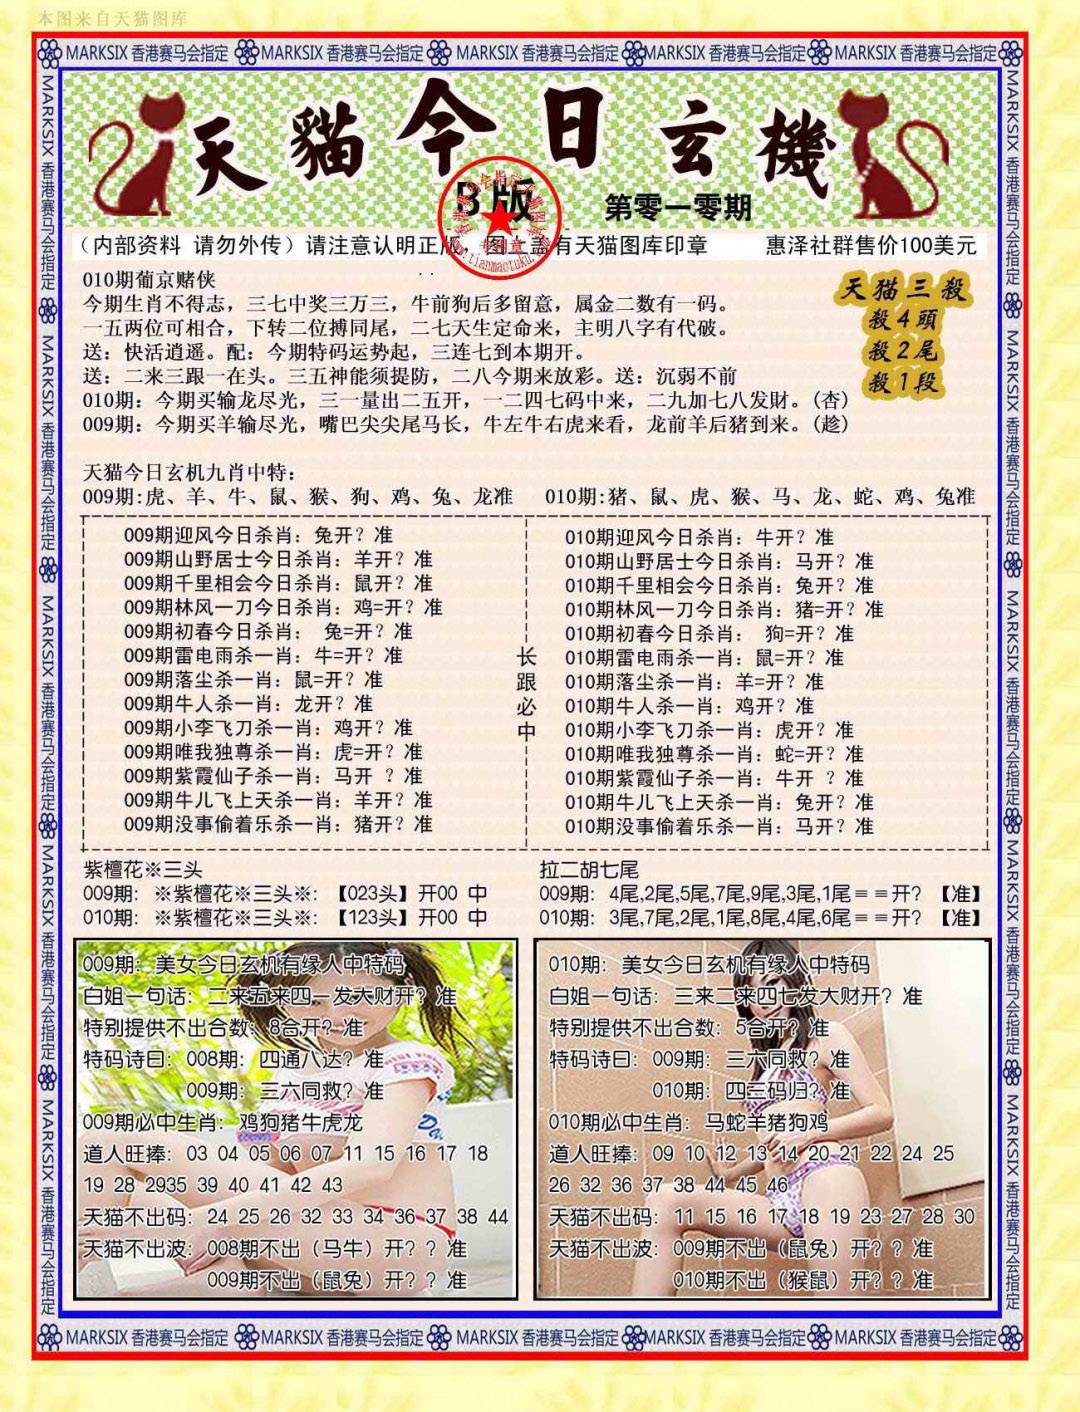 本图来自天猫图库
MARKSIX 香港赛马会指定 MARKSIX 香港赛马会指定 MARKSIX 香港赛马会指定 MARKSIX 香港赛马会指定 MARKSIX 香港赛马会指定
MARKSIX 香港赛马会指定 MARKSIX 香港赛马会指定 MARKSIX 香港赛马会指定 MARKSIX 香港赛马会指定 MARKSIX 香港赛马会指定
MARKSIX 香港赛马会指定 MARKSIX 香港赛马会指定 MARKSIX 香港赛马会指定 MARKSIX 香港赛马会指定 MARKSIX 香港赛马会指定
天貓今日玄機
B版
第零一零期
www.tianmaotuku.com
（内部资料 请勿外传）请注意认明正版，图上盖有天猫图库印章 惠泽社群售价100美元
010期葡京赌侠
今期生肖不得志，三七中奖三万三，牛前狗后多留意，属金二数有一码。
一五两位可相合，下转二位搏同尾，二七天生定命来，主明八字有代破。
送：快活逍遥。配：今期特码运势起，三连七到本期开。
送：二来三跟一在头。三五神能须提防，二八今期来放彩。送：沉弱不前
010期：今期买输龙尽光，三一量出二五开，一二四七码中来，二九加七八发财。(杏)
009期：今期买羊输尽光，嘴巴尖尖尾马长，牛左牛右虎来看，龙前羊后猪到来。(趁)
天猫三殺
殺4頭
殺2尾
殺1段
天猫今日玄机九肖中特：
009期:虎、羊、牛、鼠、猴、狗、鸡、兔、龙准 010期:猪、鼠、虎、猴、马、龙、蛇、鸡、兔准
009期迎风今日杀肖：兔开？准
009期山野居士今日杀肖：羊开？准
009期千里相会今日杀肖：鼠开？准
009期林风一刀今日杀肖：鸡=开？准
009期初春今日杀肖： 兔=开？准
009期雷电雨杀一肖：牛=开？准
009期落尘杀一肖：鼠=开？准
009期牛人杀一肖：龙开？准
009期小李飞刀杀一肖：鸡开？准
009期唯我独尊杀一肖：虎=开？准
009期紫霞仙子杀一肖：马开 ？准
009期牛儿飞上天杀一肖：羊开？准
009期没事偷着乐杀一肖：猪开？准
长跟必中
010期迎风今日杀肖：牛开？准
010期山野居士今日杀肖：马开？准
010期千里相会今日杀肖：兔开？准
010期林风一刀今日杀肖：猪=开？准
010期初春今日杀肖： 狗=开？准
010期雷电雨杀一肖：鼠=开？准
010期落尘杀一肖：羊=开？准
010期牛人杀一肖：鸡开？准
010期小李飞刀杀一肖：虎开？准
010期唯我独尊杀一肖：蛇=开？准
010期紫霞仙子杀一肖：牛开 ？准
010期牛儿飞上天杀一肖：兔开？准
010期没事偷着乐杀一肖：马开？准
紫檀花※三头
009期：※紫檀花※三头※：【023头】开00 中
010期：※紫檀花※三头※：【123头】开00 中
拉二胡七尾
009期：4尾,2尾,5尾,7尾,9尾,3尾,1尾＝＝开？【准】
010期：3尾,7尾,2尾,1尾,8尾,4尾,6尾＝＝开？【准】
009期：美女今日玄机有缘人中特码
白姐一句话：二来五来四一发大财开？准
特别提供不出合数：8合开？准
特码诗曰：008期：四通八达？准
009期：三六同救？准
009期必中生肖：鸡狗猪牛虎龙
道人旺捧：03 04 05 06 07 11 15 16 17 18
19 28 2935 39 40 41 42 43
天猫不出码：24 25 26 32 33 34 36 37 38 44
天猫不出波：008期不出（马牛）开？？准
009期不出（鼠兔）开？？准
010期：美女今日玄机有缘人中特码
白姐一句话：三来二来四七发大财开？准
特别提供不出合数：5合开？准
特码诗曰：009期：三六同救？准
010期：四三码归？准
010期必中生肖：马蛇羊猪狗鸡
道人旺捧：09 10 12 13 14 20 21 22 24 25
26 32 36 37 38 44 45 46
天猫不出码：11 15 16 17 18 19 23 27 28 30
天猫不出波：009期不出（鼠兔）开？？准
010期不出（猴鼠）开？？准
MARKSIX 香港赛马会指定 MARKSIX 香港赛马会指定 MARKSIX 香港赛马会指定 MARKSIX 香港赛马会指定 MARKSIX 香港赛马会指定